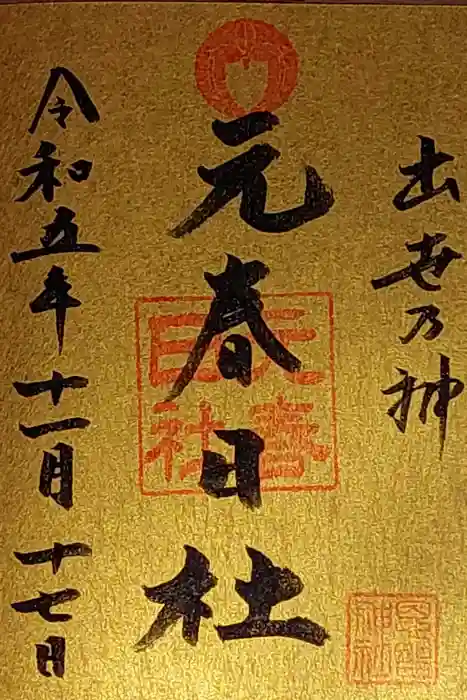 出世乃神
元春日社
元春日社
令和五年十一月十七日